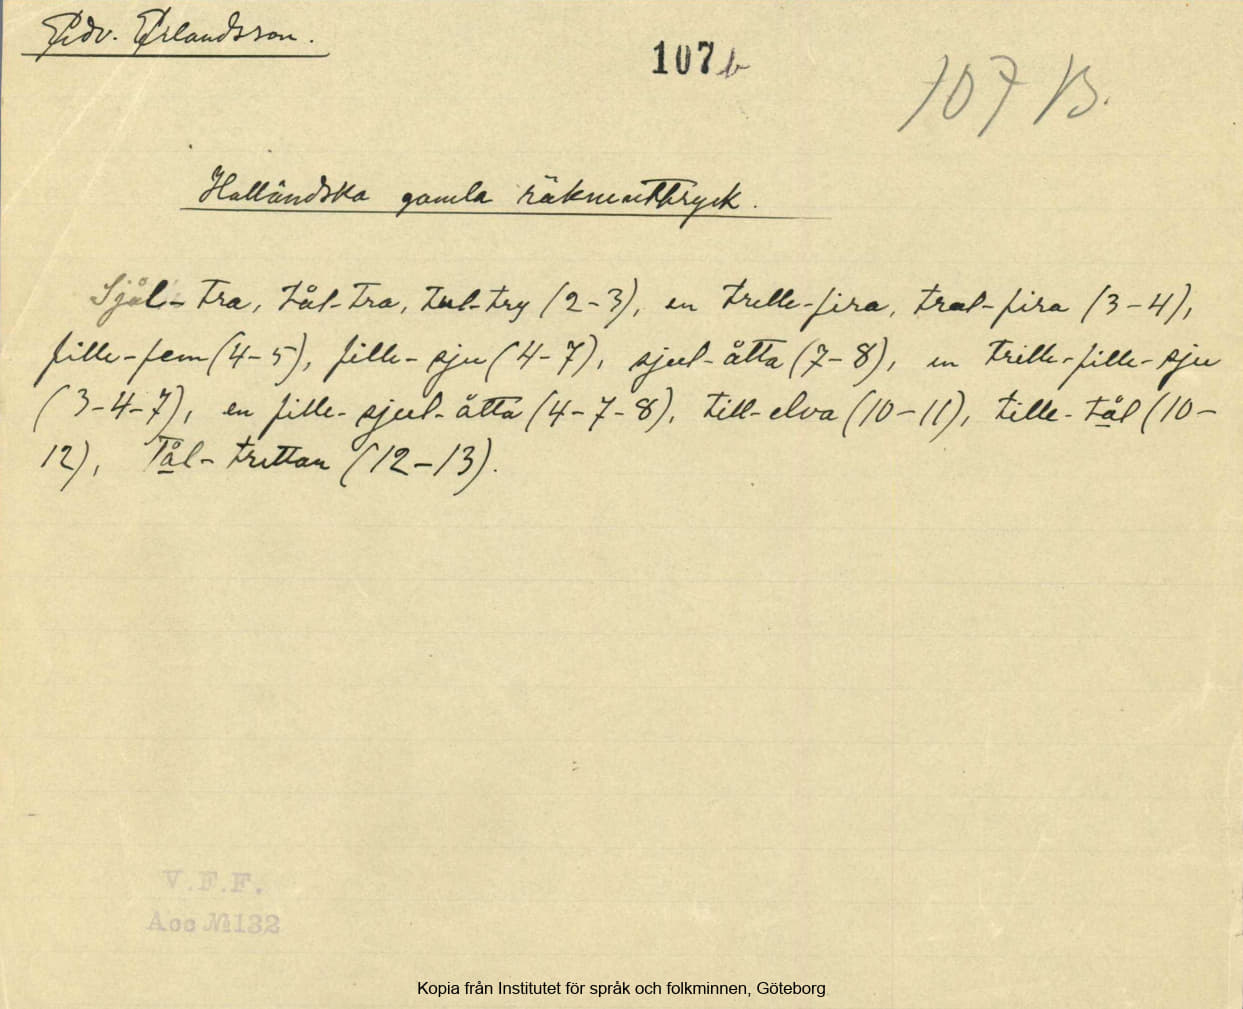 Edv. Erlandsson.
107 b
107 B.
Halländska gamla räkneuttryck.
Själ- tra, tål-tra, tul-try (2-3), en trille-fira, tral-fira (3-4),
fille-fem (4-5), fille-sju (4-7), sjul-åtta (7-8), en trille-fille-sju
(3-4-7), en fille-sjul-åtta (4-7-8), till-elva (10-11), tille-tål (10-
12), Tål-trettan (12-13).
V.F.F.
Acc №132
Kopia från Institutet för språk och folkminnen, Göteborg